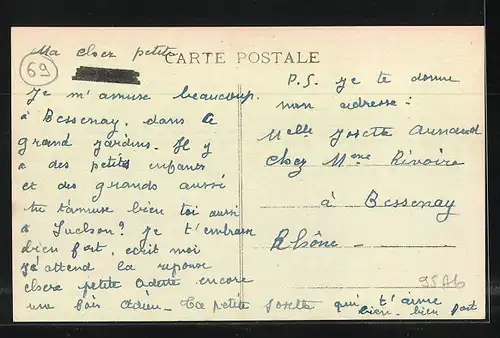 Ma cher petite
CARTE POSTALE
69
Je m'amuse beaucoup
à Bessenay, dans le
grand jardins. Il y
a des petits enfants
et des grands aussi
tu t'amuse bien toi aussi
à ? Je t'embrasse
bien fort, ecrit moi
j'attend la reponse
chere petite Odette encore
une fois adieu - Ta petite Josette qui t'aime
bien - bien fort
P.S. je te donne
mon adresse :
Melle Josette Arnaud
chez Mme Rivoire
à Bessenay
Rhône